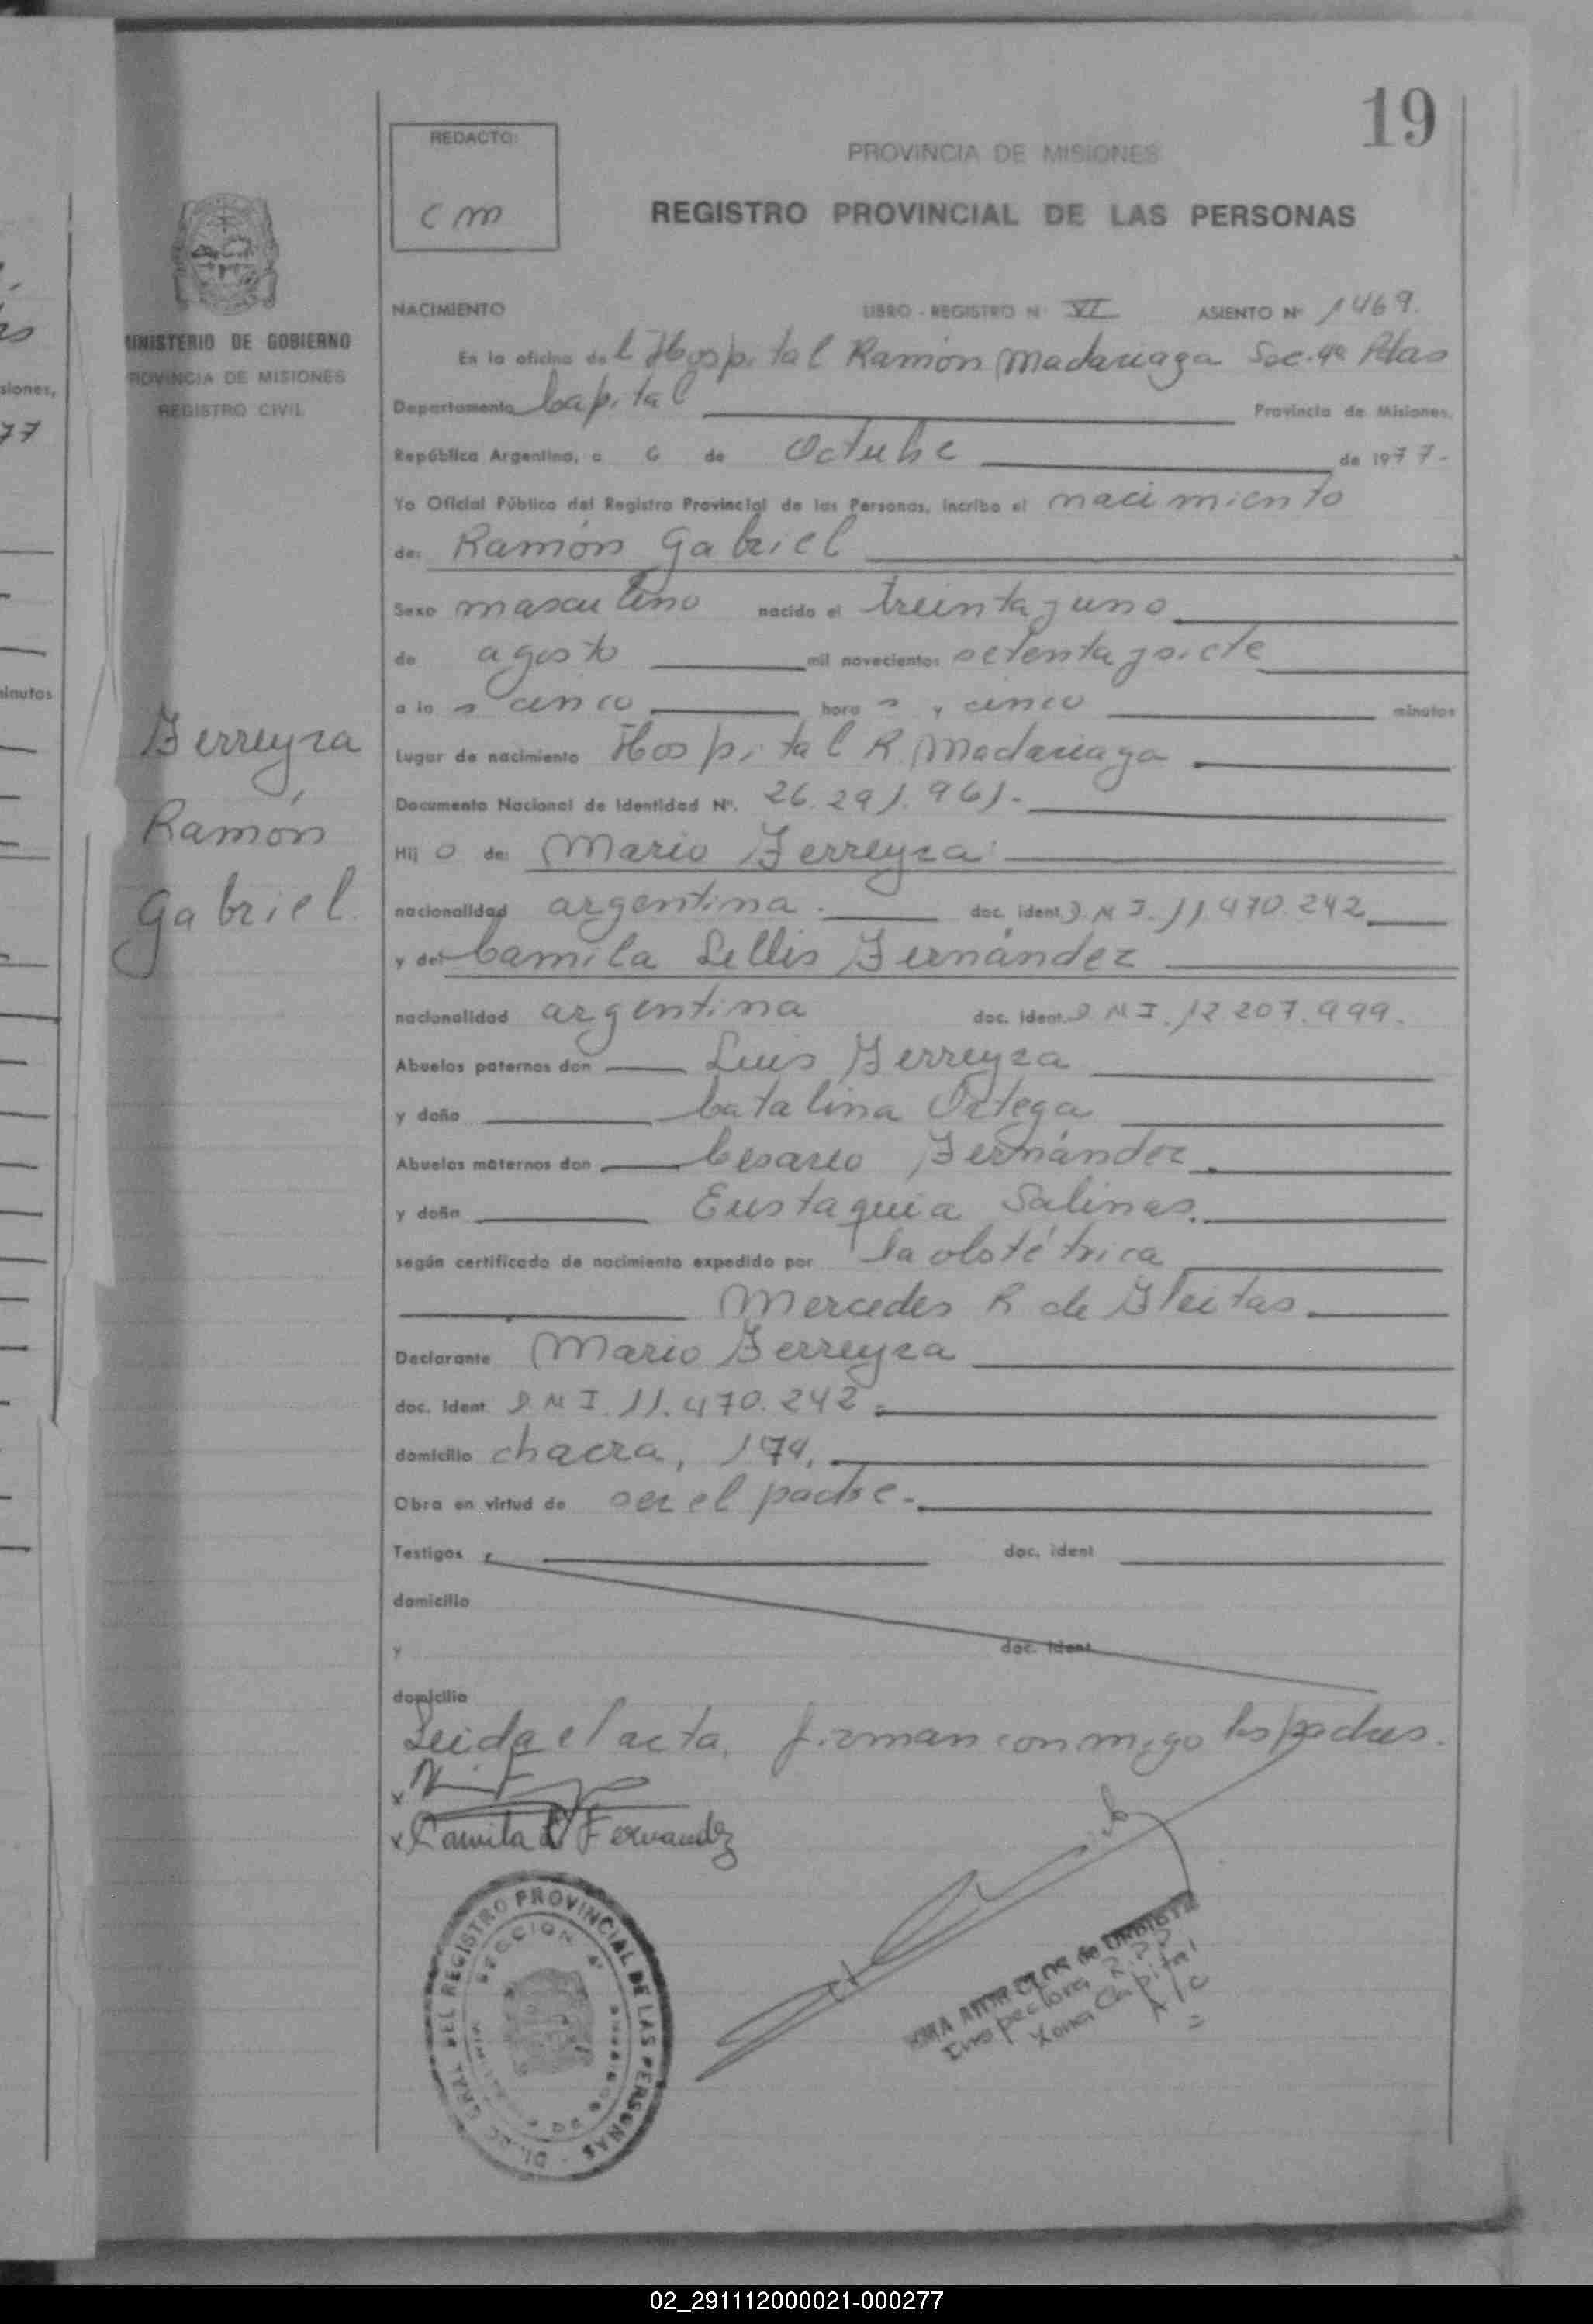 19
REDACTO:
cm
PROVINCIA DE MISIONES
REGISTRO PROVINCIAL DE LAS PERSONAS
MINISTERIO DE GOBIERNO
PROVINCIA DE MISIONES
REGISTRO CIVIL
siones,
77
minutos
Ferreyra
Ramón
Gabriel
NACIMIENTO LIBRO - REGISTRO N VI ASIENTO Nº 1469.
En la oficina del Hospital Ramón Madariaga Sec. 4ª Pdas
Departamento Capital Provincia de Misiones,
República Argentina, a 6 de Octubre de 1977-
Yo Oficial Público del Registro Provincial de las Personas, incribo el nacimiento
de: Ramón Gabriel
Sexo masculino nacido el treinta y uno
de agosto mil novecientos setenta y siete
a las cinco horas y cinco minutos
Lugar de nacimiento Hospital R. Madariaga
Documento Nacional de Identidad Nº. 26.291.961.-
Hijo de: Mario Ferreyra
nacionalidad argentina. doc. ident. D.N.I. 11.470.242
y de: Camila Lellis Fernández
nacionalidad argentina doc. ident. D.N.I. 12.207.999.
Abuelos paternos don Luis Ferreyra
y doña Catalina Ortega
Abuelos maternos don Cesareo Fernández
y doña Eustaquia Salinas.
según certificado de nacimiento expedido por la obstétrica
Mercedes R de Gleitas.
Declarante Mario Ferreyra
doc. ident. D.N.I. 11.470.242
domicilio chacra, 174.
Obra en virtud de ser el padre.-
Testigos doc. ident
domicilio
y doc. ident
domicilio
Leida el acta, firman conmigo los padres.
x
x Camila L Fernandez
DIREC GRAL DEL REGISTRO PROVINCIAL DE LAS PERSONAS
SECCION 4ª
Inspectora
Zona Capital
A/C
02_291112000021-000277